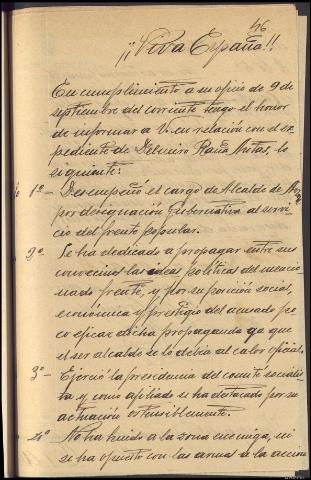 46
¡¡Viva España!!
En cumplimiento a su oficio de 9 de
septiembre del corriente tengo el honor
de informar a V. en relación con el ex-
pediente de Delmiro Raña Antas, lo
siguiente:
1º- Desempeñó el cargo de Alcalde de
por designación Gubernativa al servi-
cio del frente popular.
2º- Se ha dedicado a propagar entre sus
convecinos las ideas políticas del mencio-
nado frente, y por su posición social,
económica y prestigio del acusado po-
co eficaz dicha propaganda ya que
el ser alcalde se lo debía al calor oficial.
3º- Ejerció la presidencia del comité socialis-
ta y como afiliado se ha destacado por su
actuación ostensiblemente.
4º- No ha huido a la zona enemiga, ni
se ha opuesto con las armas de la acción